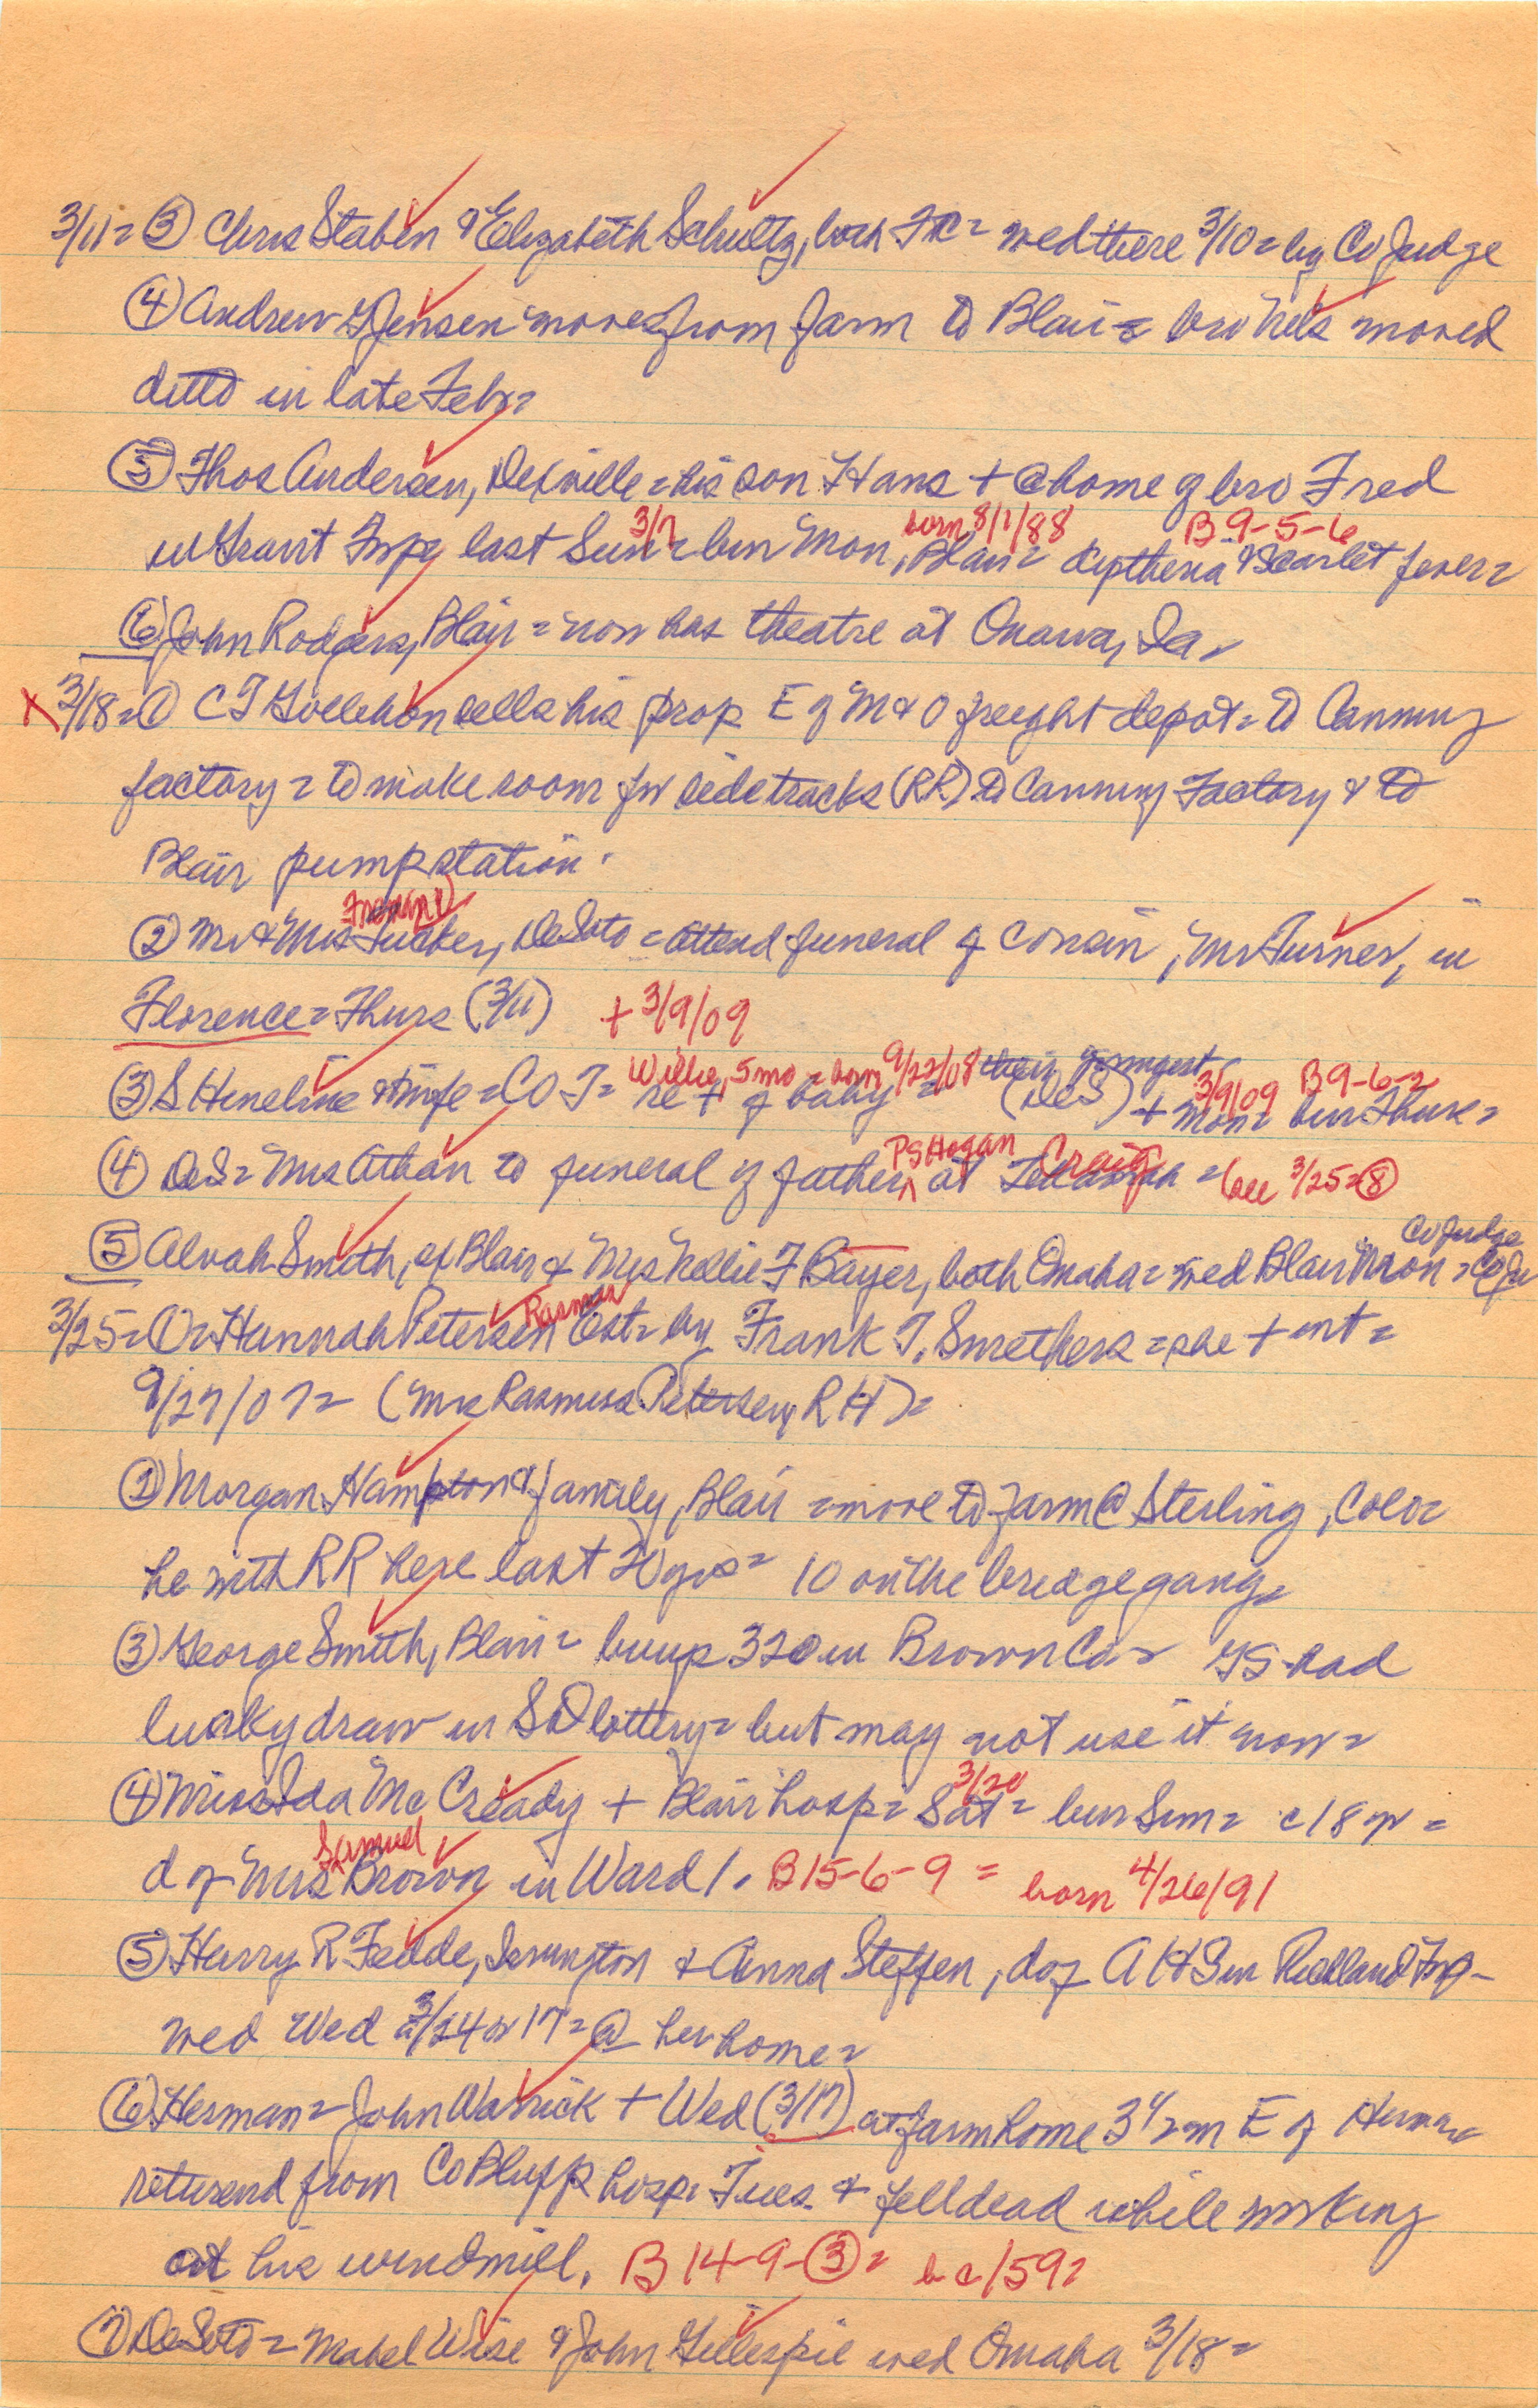 3/11= ③ Chris Staben & Elizabeth Schultz, both = wed there 3/10= by Co Judge
④ Andrew G Jensen moves from farm to Blair= bro Nels moved
ditto in late Feb=
⑤ Thos Andersen, = his son Hans + @ home of bro Fred
in Grant Twp last Sun 3/7 = bur Mon, Blair= born 8/1/88 diptheria & Scarlet fever= B 9-5-6
⑥ John Rodgers, Blair = now has theatre at Onawa, Ia=
X 3/18= ① C T sells his prop E of M & O freight depot= to Canning
factory = to make room for side tracks (RR) to Canning Factory & to
Blair pump station.
② Mr & Mrs Freman Tucker, DeSoto = attend funeral of cousin, Mr Turner, in
Florence= Thurs (3/11) + 3/9/09
③ S Heneline & wife = C O T= re + of baby = Willie, 5 mo = born 9/22/08 their youngest (DeS) + Mon= 3/9/09 bur Thurs= B 9-6-2
④ DeS= Mrs Athan to funeral of father, P S Hogan at Tekamah Craig = (see 3/25= ⑧
⑤ Alvah Smith, of Blair & Mrs Nellie F Bayer, both Omaha= wed Blair Mon = Co Judge
3/25= ①= Hannah Petersen Rasmus Est= by Frank T. Smethers = she + int =
9/27/07= (Mrs Rasmus Petersen, R H)=
② Morgan Hampton & family, Blair = move to farm @ Sterling, Colo=
he with RR here last 20 yrs= 10 on the bridge gang=
③ George Smith, Blair= buys 320 in Brown Co= GS had
lucky draw in SD lottery= but may not use it now=
④ Miss Ida McCready + Blair hosp= Sat 3/20 = bur Sun= c 18 yr =
d of Mrs Samuel Brown in Ward 1. B 15-6-9 = born 4/26/91
⑤ Harry R Fedde, Irvington & Anna Steffen, d of A H S in Richland Twp-
wed Wed 3/24 or 17= @ her home=
⑥ Herman= John Warrick + Wed (3/17) at farm home 3 1/2 m E of Herman
returend from Co Bluffs hosp= Tues & fell dead while working
at his windmill. B 14-9-③= b c/59=
⑦ DeSoto= Mabel Wise & John Gillespie wed Omaha 3/18=